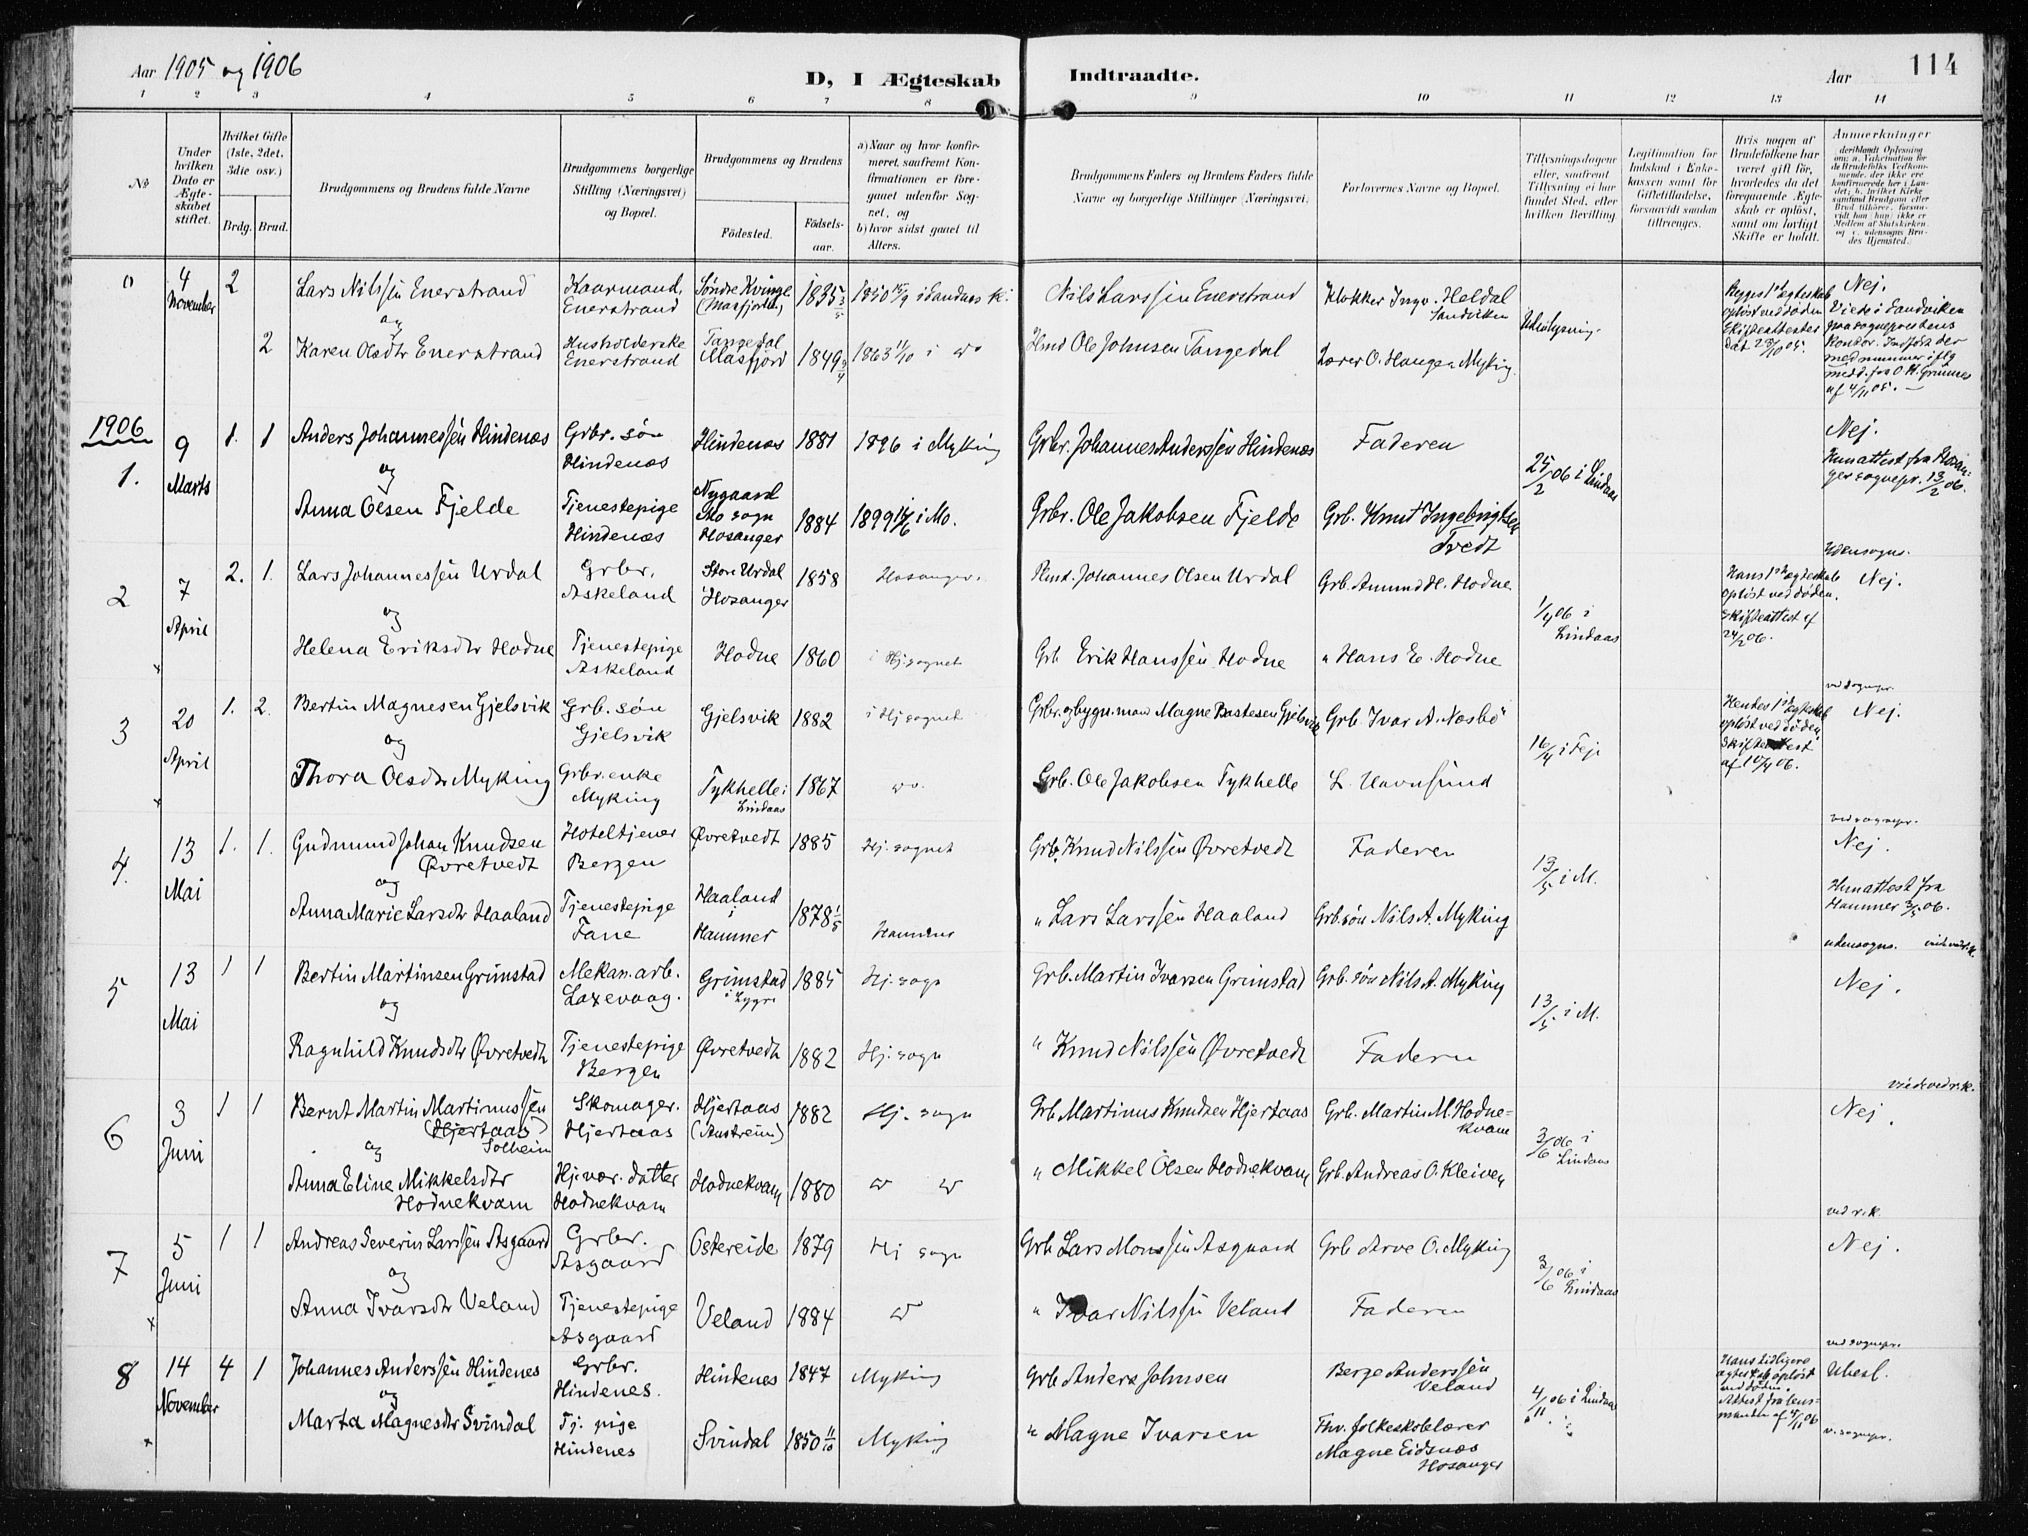 Aar 1905 og 1906
D, I Ægteskab Indtraadte.
Aar
114
1 2 3 4 5 6 7 8 9 10 11 12 13 14
No
Under hvilken Dato er Ægteskabet stiftet.
Hvilket Gifte (1ste, 2det, 3die osv.)
Brdg. Brud.
Brudgommens og Brudens fulde Navne
Brudgommens borgerlige Stilling (Næringsvei) og Bopæl.
Brudgommens og Brudens
Fødested.
Fødselsaar.
a) Naar og hvor konfirmeret, saafremt Konfirmationen er foregaaet udenfor Sognet, og
b) hvor sidst gaaet til Alters.
Brudgommens Faders og Brudens Faders fulde Navne og borgerlige Stillinger (Næringsvei)
Forlovernes Navne og Bopæl.
Tillysningsdagene eller, saafremt Tillysning ei har fundet Sted, efter hvilken Bevilling
Legitimation for Indskud i Enkekassen samt for Giftetilladelse, forsaavidt saadan tiltrænges.
Hvis nogen af Brudefolkene har været gift før, hvorledes da det foregaaende Ægteskab er opløst, samt om lovligt Skifte er holdt.
Anmerkninger
0 4 November 2 Lars Nilssen Enerstrand Kaarmand, Enerstrand Søndre Kvinge (Masfjorden) 1835 Nils Larssen Enerstrand Klokker Ingv. Heldal Sandviken Nej.
og
2 Karen Olsdtr Enerstrand Husholderske Enerstrand Tangedal Masfjord 1849 1863 11/10 i do Hmd Ole Johnsen Tangedal Lærer O. Haugen Myking.
Viede i Sandviken
1906
1. 9 Marts 1. 1 Anders Johannessen Hindenæs Grbr. søn Hindenæs Hindenæs 1881 1896 i Myking Grbr. Johannes Anderssen Hindenæs Faderen 25/2 06 i Lindaas Nej.
og
Anna Olsen Fjelde Tjenestepige Hindenæs Nygaard Mo sogn Hosanger 1884 1899 i Mo. Grbr. Ole Jakobsen Fjelde Grb. Knut Ingebrigtsen Tvedt
Udensogns.
2 7 April 2. 1. Lars Johannessen Urdal Grbr. Askeland Store Urdal Hosanger 1858 Hosanger. Hmd. Johannes Olsen Urdal Grb. Amund H. Hodne 1/4 06 i Lindaas Hans 1ste ægteskab opløst ved døden. Skifteattest af Nej.
og
Helena Eriksdtr Hodne Tjenestepige Askeland Hodne 1860 i Hj. sognet Grb Erik Hanssen Hodne " Hans E. Hodne
ved sognepr.
3 20 April 1. 2. Bertin Magnesen Gjelsvik Grb. søn Gjelsvik Gjelsvik 1882 i Hj sognet Grbr. og bygn.mand Magne Bastesen Gjelsvik Grb. Ivar A. Næsbø 16/4 i Feje Hendes 1ste Ægteskab opløst ved døden Skifteattest af 10/4 06. Nej.
og
Thora Olsdtr Myking Grbr. enke Myking Tykhelle i Lindaas 1867 do. Grb. Ole Jakobsen Tykhelle L. Havnsund
ved sognepr.
4. 13 Mai 1. 1. Gudmund Johan Knudsen Øvretvedt Hoteltjener Bergen Øvretvedt 1885 Hj. sognet Grb. Knud Nilssen Øvretvedt Faderen 13/5 i M. Nej.
og
Anna Marie Larsdtr Haaland Tjenestepige Fane Haaland i Hammer 1878 Hammer " Lars Larssen Haaland Grb.søn Nils A. Myking
Hammer 3/5 06.
udensogns.
5 13 Mai 1 1 Bertin Martinsen Grimstad Mekan. arb. Laxevaag. Grimstad i Lygre 1885 Hj. sogn Grb. Martin Ivarsen Grimstad Grb. søn Nils A. Myking 13/5 i M. Nej.
og
Ragnhild Knudsdtr Øvretvedt Tjenestepige Bergen Øvretvedt 1882 Hj. sogn " Knud Nilssen Øvretvedt Faderen
6 3 Juni 1 1 Bernt Martin Martinussen (Hjertaas) Solheim Skomager. Hjertaas Hjertaas (Austreim) 1882 Hj. sogn Grb Martinus Knudsen Hjertaas Grb. Martin M. Hodnekvam 3/6 06 i Lindaas Nej.
og
Anna Eline Mikkelsdtr Hodnekvam Hjvær. datter Hodnekvam Hodnekvam 1880 do do " Mikkel Olsen Hodnekvam Grb. Andreas O. Kleiven
ved r.k.
7 5 Juni 1 1 Andreas Severin Larssen Asgaard Grbr. Asgaard Ostereide 1879 Hj sogn Grb Lars Monssen Asgaard Grb Arve O. Myking 3/6 06 i Lindaas Nej.
og
Anna Ivarsdtr Veland Tjenestepige Asgaard Veland 1884 do " Ivar Nilssen Veland Faderen
ved sognepr.
8 14 November 4 1 Johannes Anderssen Hindenes Grbr. Hindenes. Hindenes 1847 Myking Grb Anders Johnsen Berge Anderssen Veland 4/11 06 i Lindaas Hans tidligere ægteskab opløst ved døden. Attest fra lensmanden af Ubesl.
og
Marta Magnesdtr Svindal Tj. pige Hindenes Svindal 1850 11/10 Myking " Magne Ivarsen Fhv. folkeskolelærer Magne Eidsnæs Hosanger
v. sognepr.